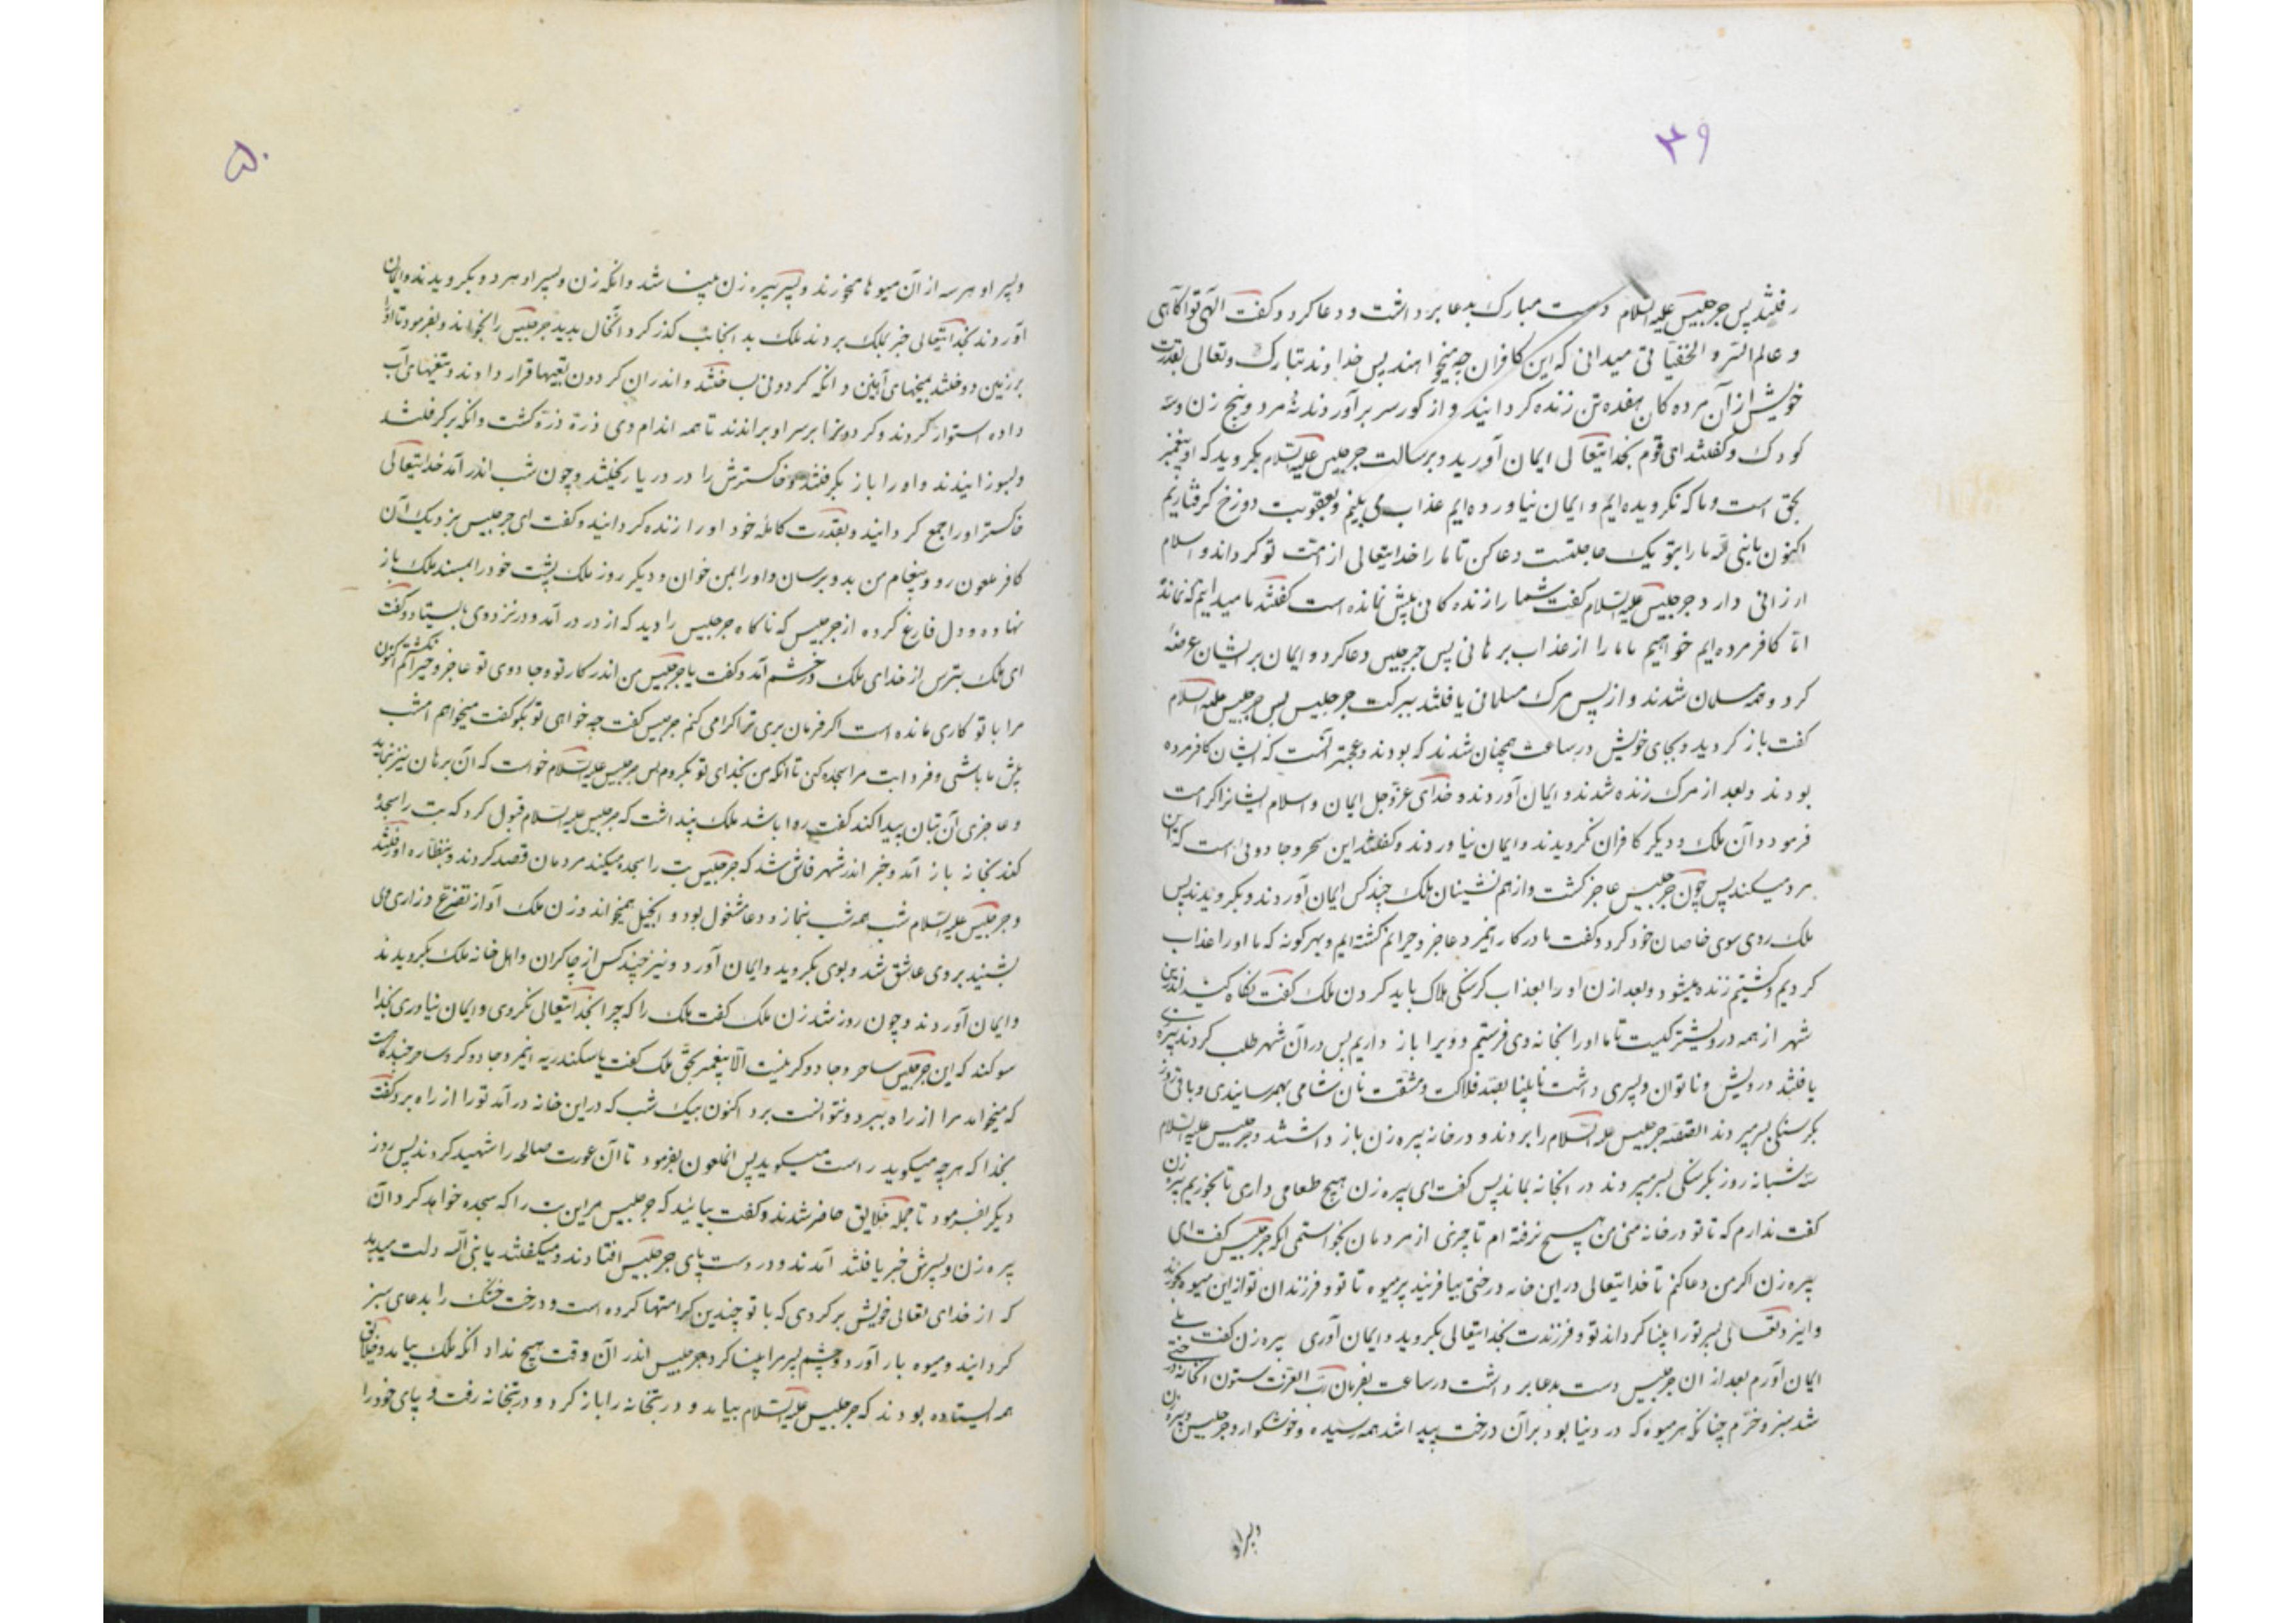 ۴۹
رفتند پس جرجیس علیه السلام دست مبارک بدعا برداشت و دعا کرد و گفت الهی تو آگاهی
و عالم السر و الخفیاتی میدانی که این کافران چه میخواهند پس خداوند تبارک و تعالی بقدرت
خویش از آن مرده کان هفده تن زنده کردانید و از کور سر برآوردند نه مرد و پنج زن و سه
کودک و گفتند ای قوم بخدایتعالی ایمان آورید و برسالت جرجیس علیه السلام بکروید که او پیغمبر
بحق است و ما که نکرویده ایم و ایمان نیاورده ایم عذاب می بینیم و بعقوبت دوزخ کرفتاریم
اکنون یا نبی الله ما را بتو یک حاجتست دعا کن تا ما را خدایتعالی از امت تو کرداند و اسلام
ارزانی دارد جرجیس علیه السلام گفت شما را زنده کانی پیش نمانده است گفتند ما میدانیم که نمانده
اما کافر مرده ایم خواهیم ما را از عذاب برهانی پس جرجیس دعا کرد و ایمان بر ایشان عرضه
کرد و همه مسلمان شدند و از پس مرک مسلمانی یافتند ببرکت جرجیس پس جرجیس علیه السلام
گفت باز کردید و بجای خویش در ساعت همچنان شدند که بودند و عجبتر آنست که ایشان کافر مرده
بودند و بعد از مرک زنده شدند و ایمان آوردند و خدای عز و جل ایمان و اسلام ایشانرا کرامت
فرمود و آن ملک و دیکر کافران نکرویدند و ایمان نیاوردند و گفتند این سحر و جادوئی است که این
مرد میکند پس چون جرجیس عاجز کشت و از هم نشینان ملک چند کس ایمان آوردند و بکرویدند پس
ملک روی سوی خاصان خود کرد و گفت ما در کار اینمرد عاجز و حیرانم کشته ایم و بهر کونه که ما او را عذاب
کردیم و کشتیم زنده میشود و بعد از ن او را بعذاب کرسنکی هلاک باید کردن ملک گفت نکاه کنید اندرین
شهر از همه درویشتر کیست تا ما او را بخانه وی فرستیم و ویرا باز داریم پس در آن شهر طلب کردند پیره زنی
یافتند درویش و ناتوان و پسری داشت نابینا بصد فلاکت و مشقت نان شامی بهم رسانیدی و باقی روز
بکرسنکی بسر میبردند القصه جرجیس علیه السلام را بردند و در خانه پیره زن باز داشتند و جرجیس علیه السلام
سه شبانه روز بکرسنکی بسر میبردند در انخانه بماند پس گفت ای پیره زن هیچ طعامی داری تا بخوریم پیره زن
گفت ندارم که تا تو در خانه منی من هیچ نرفته ام تا چیزی از مردمان بخواستمی انکه جرجیس گفت ای
پیره زن اکر من دعا کنم تا خدایتعالی در این خانه درختی بیافریند پر میوه تا تو و فرزندان تو از این میوه بخورند
و ایزد تعالی پسر تو را بینا کرداند تو و فرزندت بخدایتعالی بکروید و ایمان آوری پیره زن گفت بلی
ایمان آورم بعد از ان جرجیس دست بدعا برداشت در ساعت بفرمان رب العزت ستون انخانه درختی
شد سبز و خرم چنانکه هر میوه که در دنیا بود بر آن درخت پیدا شد همه رسیده و خوشکوار و جرجیس و پیره زن
و پسر او
۵۰
و پسر او هر سه از آن میوها بخورند و پسر پیره زن بینا شد وانکه زن و پسر او هر دو بکرویدند و ایمان
آوردند بخدایتعالی خبر بملک بردند ملک بد انجانب کذر کرد و انحال بدید جرجیس را بخواند و بفرمود تا او را
بر زمین دوختند بمیخهای آهنین وانکه کردونی بساختند و اندران کردون تیغها قرار دادند و تیغهای آب
داده استوار کردند و کردونرا بر سر او براندند تا همه اندام وی ذره ذره کشت وانکه بر کرفتند
و بسوزانیدند و او را باز بکرفتند و خاکسترش را در دریا ریختند و چون شب اندر آمد خدایتعالی
خاکستر او را جمع کردانید و بقدرت کامله خود او را زنده کردانید و گفت ای جرجیس بنزدیک آن
کافر ملعون رو و پیغام من بدو برسان و او را بمن خوان و دیکر روز ملک پشت خود را بمسند ملک باز
نهاده و دل فارغ کرده از جرجیس که ناکاه جرجیس را دید که از در در آمد و در نزد وی بایستاد و گفت
ای ملک بترس از خدای ملک در خشم آمد و گفت یا جرجیس من اندر کار تو و جادوی تو عاجز و حیرانم کشتم اکنون
مرا با تو کاری مانده است اکر فرمان بری ترا کرامی کنم جرجیس گفت چه خواهی تو بکو گفت میخواهم امشب
پیش ما باشی و فردا بت مرا سجده کنی تا انکه من بخدای تو بکروم پس جرجیس علیه السلام خواست که آن برهان نیز بنماید
و عاجزی آن بتان پیدا کند گفت روا باشد ملک پنداشت که جرجیس علیه السلام قبول کرد که بت را سجده
کند بخانه باز آمد و خبر اندر شهر فاش شد که جرجیس بت را سجده میکند مردمان قصد کردند و بنظاره او رفتند
و جرجیس علیه السلام شب همه شب بنماز و دعا مشغول بود و انجیل میخواند و زن ملک آواز تضرع و زاری وی
بشنید بر وی عاشق شد و بوی بکروید و ایمان آورد و نیز چند کس از چاکران و اهل خانه ملک بکرویدند
و ایمان آوردند و چون روز شد زن ملک گفت ملک را که چرا بخدایتعالی نکروی و ایمان نیاوری بخدا
سوکند که این جرجیس ساحر و جادوکر نیست الا پیغمبر بحق ملک گفت یا سکندریه اینمرد جادوکر و ساحر چند کاهست
که میخواهد مرا از راه ببرد و نتوانست برد اکنون بیک شب که در این خانه در آمد تو را از راه برد گفت
بخدا که هر چه میکوید راست میکوید پس انملعون بفرمود تا آن عورت صالحه را شهید کردند پس روز
دیکر بفرمود تا جمله خلایق حاضر شدند و گفت بیائید که جرجیس مر این بت را که سجده خواهد کرد و آن
پیره زن و پسرش خبر یافتند آمدند و در دست پای جرجیس افتادند و میگفتند یا نبی الله دلت میدهد
که از خدای تعالی خویش بر کردی که با تو چندین کرامتها کرده است و درخت خشک را بدعای سبز
کردانید و میوه بار آورد و چشم پسر مرا بینا کرد جرجیس اندر آن وقت هیچ نداد انکه ملک بیامد و خلایق
همه ایستاده بودند که جرجیس علیه السلام بیامد و در بتخانه را باز کرد و در بتخانه رفت و پای خود را